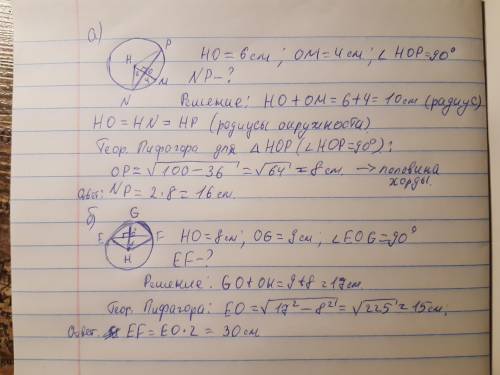 а)
P
H
6
4
M
N
HO = 6 см ; OM = 4 см ; ∠ HOP = 90°
NP - ?
Решение: HO + OM = 6 + 4 = 10 см (радиус)
HO = HN = HP (радиусы окружности)
Теор. Пифагора для △ HOP (∠ HOP = 90°):
OP = √100 - 36 = √64 = 8 см. → половина хорды.
Ответ: NP = 2·8 = 16 см.
б)
G
E
F
H
HO = 8 см; OG = 9 см; ∠ EOG = 90°
EF - ?
Решение: GO + OH = 9 + 8 = 17 см.
Теор. Пифагора: EO = √17² - 8² = √225 = 15 см;
Ответ. EF = EO · 2 = 30 см